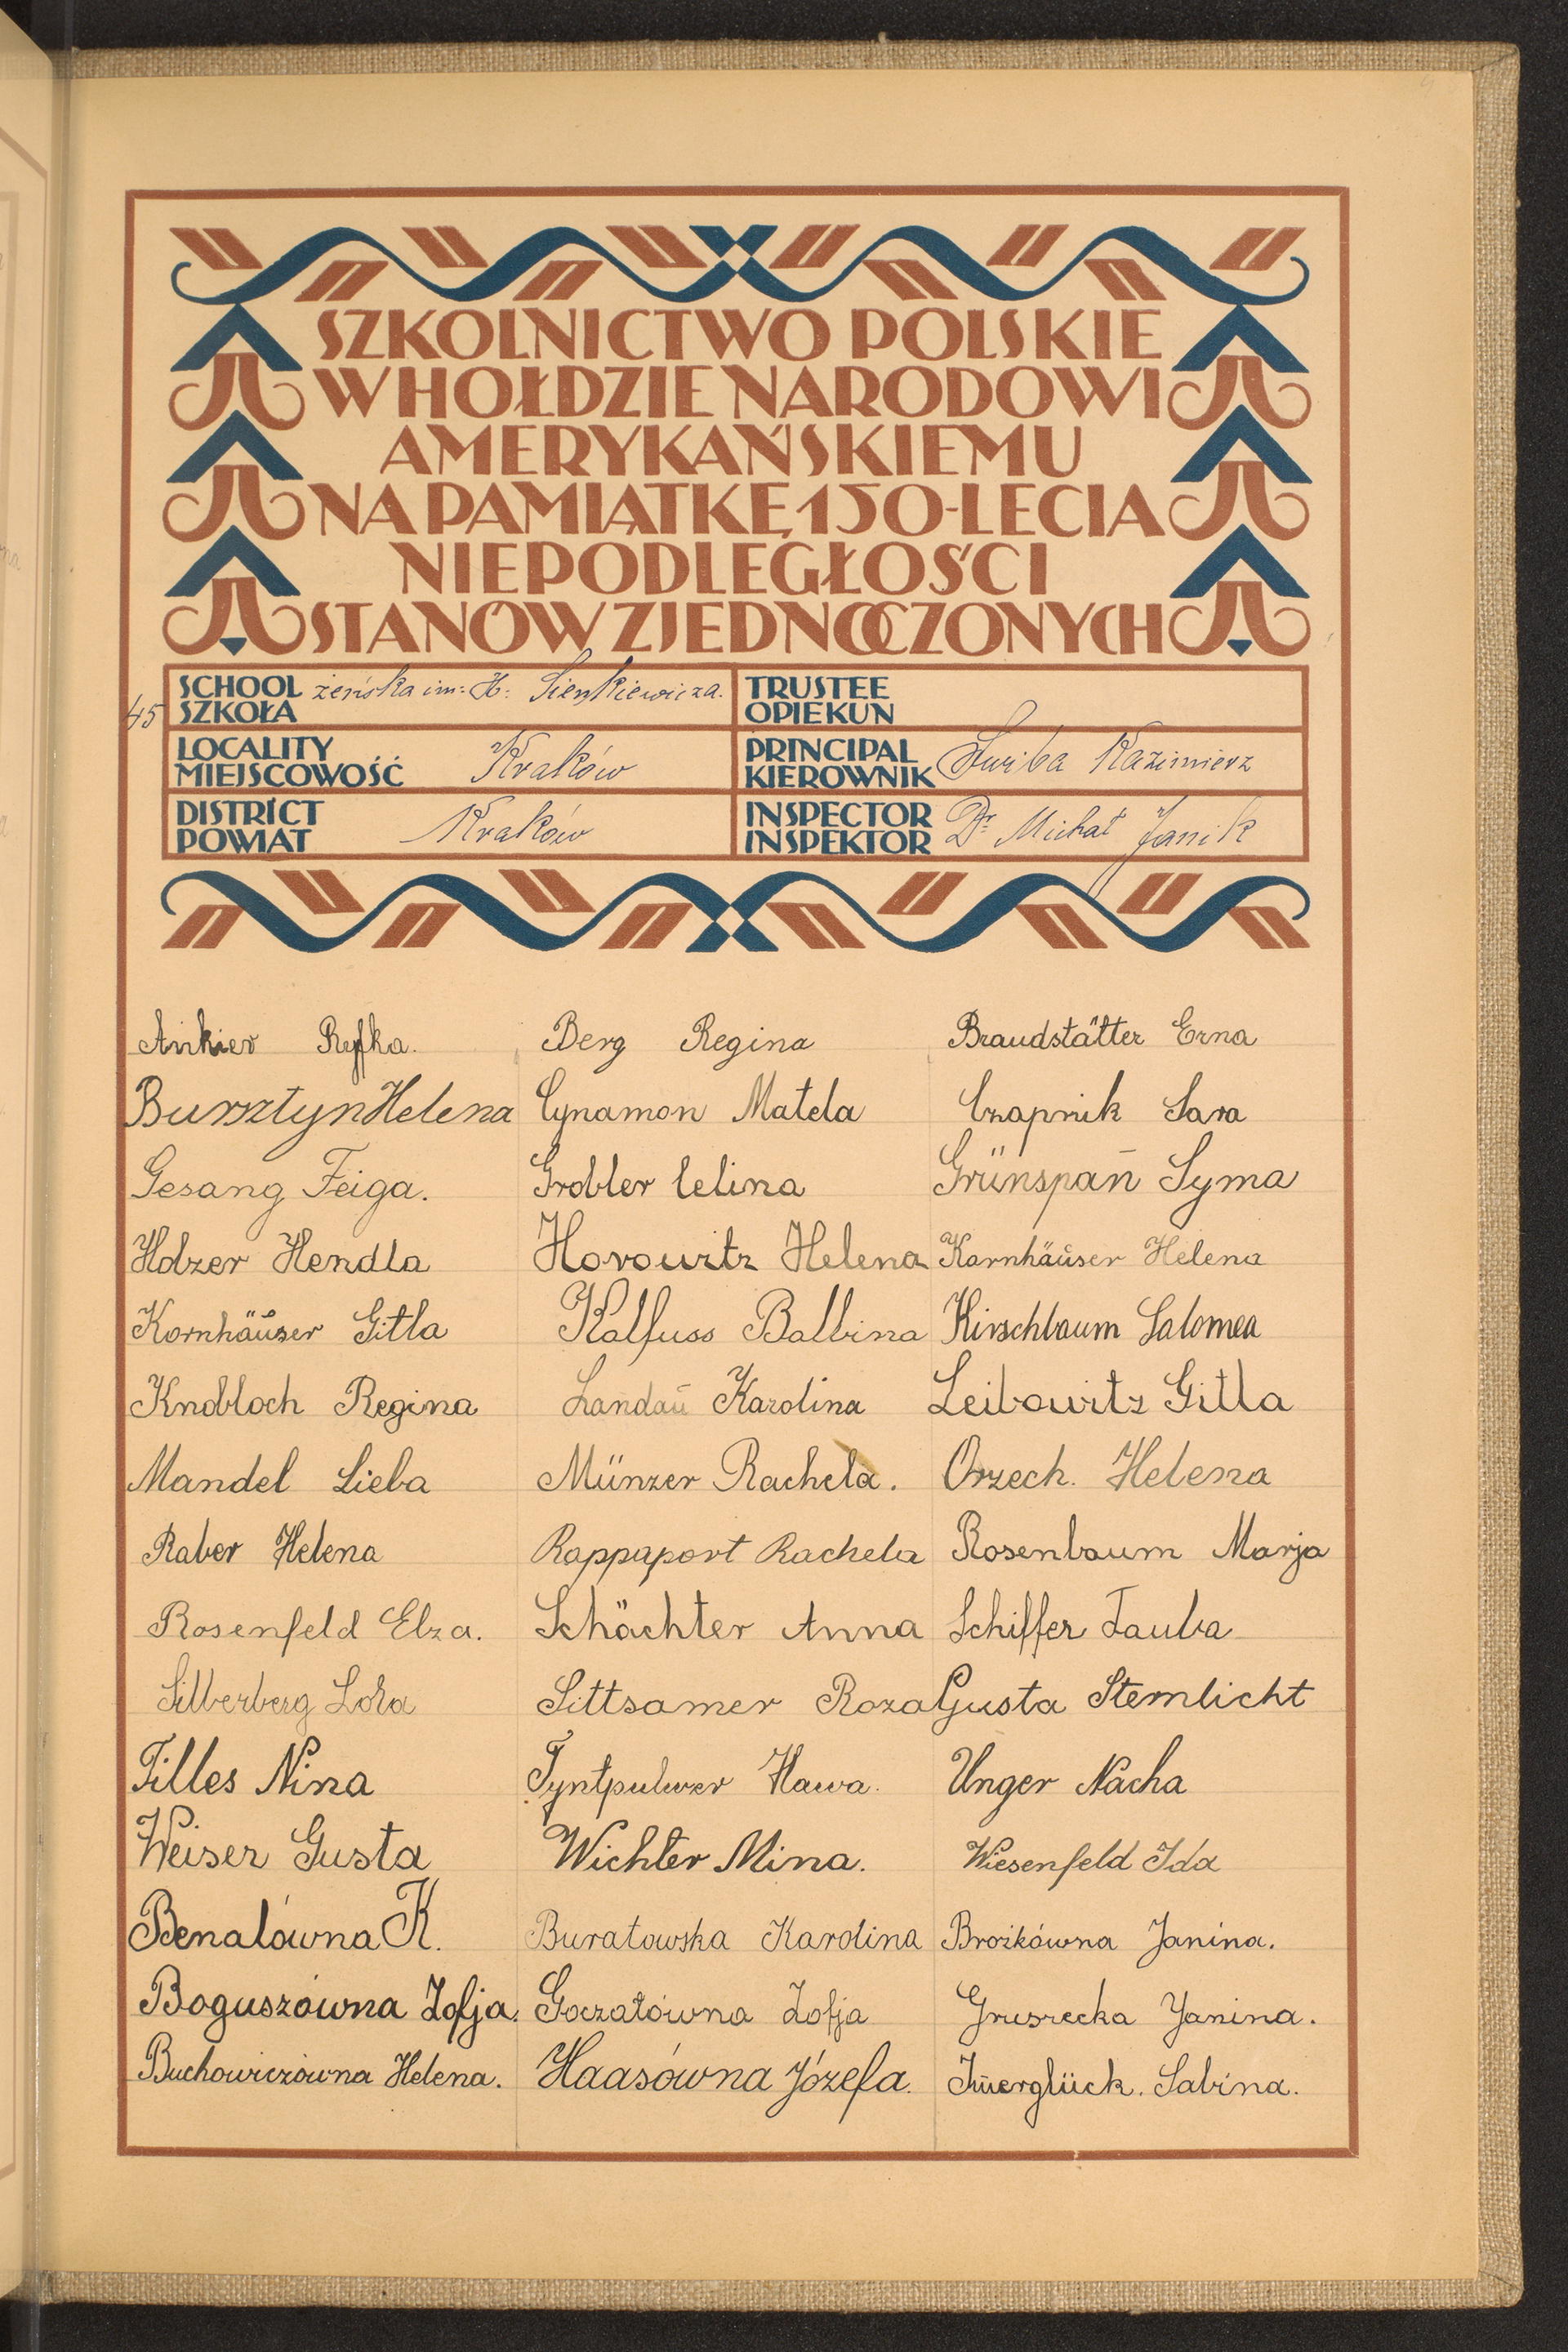 SZKOLNICTWO POLSKIE
W HOŁDZIE NARODOWI
AMERYKAŃSKIEMU
NA PAMIĄTKĘ 150-LECIA
NIEPODLEGŁOŚCI
STANÓW ZJEDNOCZONYCH
45
SCHOOL SZKOŁA żeńska im: H. Sienkiewicza.
TRUSTEE OPIEKUN
LOCALITY MIEJSCOWOŚĆ Kraków
PRINCIPAL KIEROWNIK Kazimierz
DISTRICT POWIAT Kraków
INSPECTOR INSPEKTOR Dr. Michał Janik
Ankier Ryfka. Berg Regina Braudstätter Erna
Bursztyn Helena Cynamon Matela Czapnik Sara
Gesang Feiga. Grobler Celina Grünspan Syma
Holzer Hendla Horowitz Helena Kornhäuser Helena
Kornhäuser Gitla Kalfuss Balbina Kirschbaum Salomea
Knobloch Regina Landau Karolina Leibowitz Gitla
Mandel Lieba Münzer Rachela. Orzech. Helena
Raber Helena Rappaport Rachela Rosenbaum Marja
Rosenfeld Elza. Schächter Anna Schiffer Tauba
Silberberg Lola Sittsamer Roza Gusta Sternlicht
Tilles Nina Tyntpulwer Hawa. Unger Nacha
Weiser Gusta Wichler Mina. Wiesenfeld Ida
Benalówna K. Buratowska Karolina Brożkówna Janina.
Boguszówna Zofja. Goczałówna Zofja Gruszecka Janina.
Buchowiczówna Helena. Haasówna Józefa. Imerglück. Sabina.